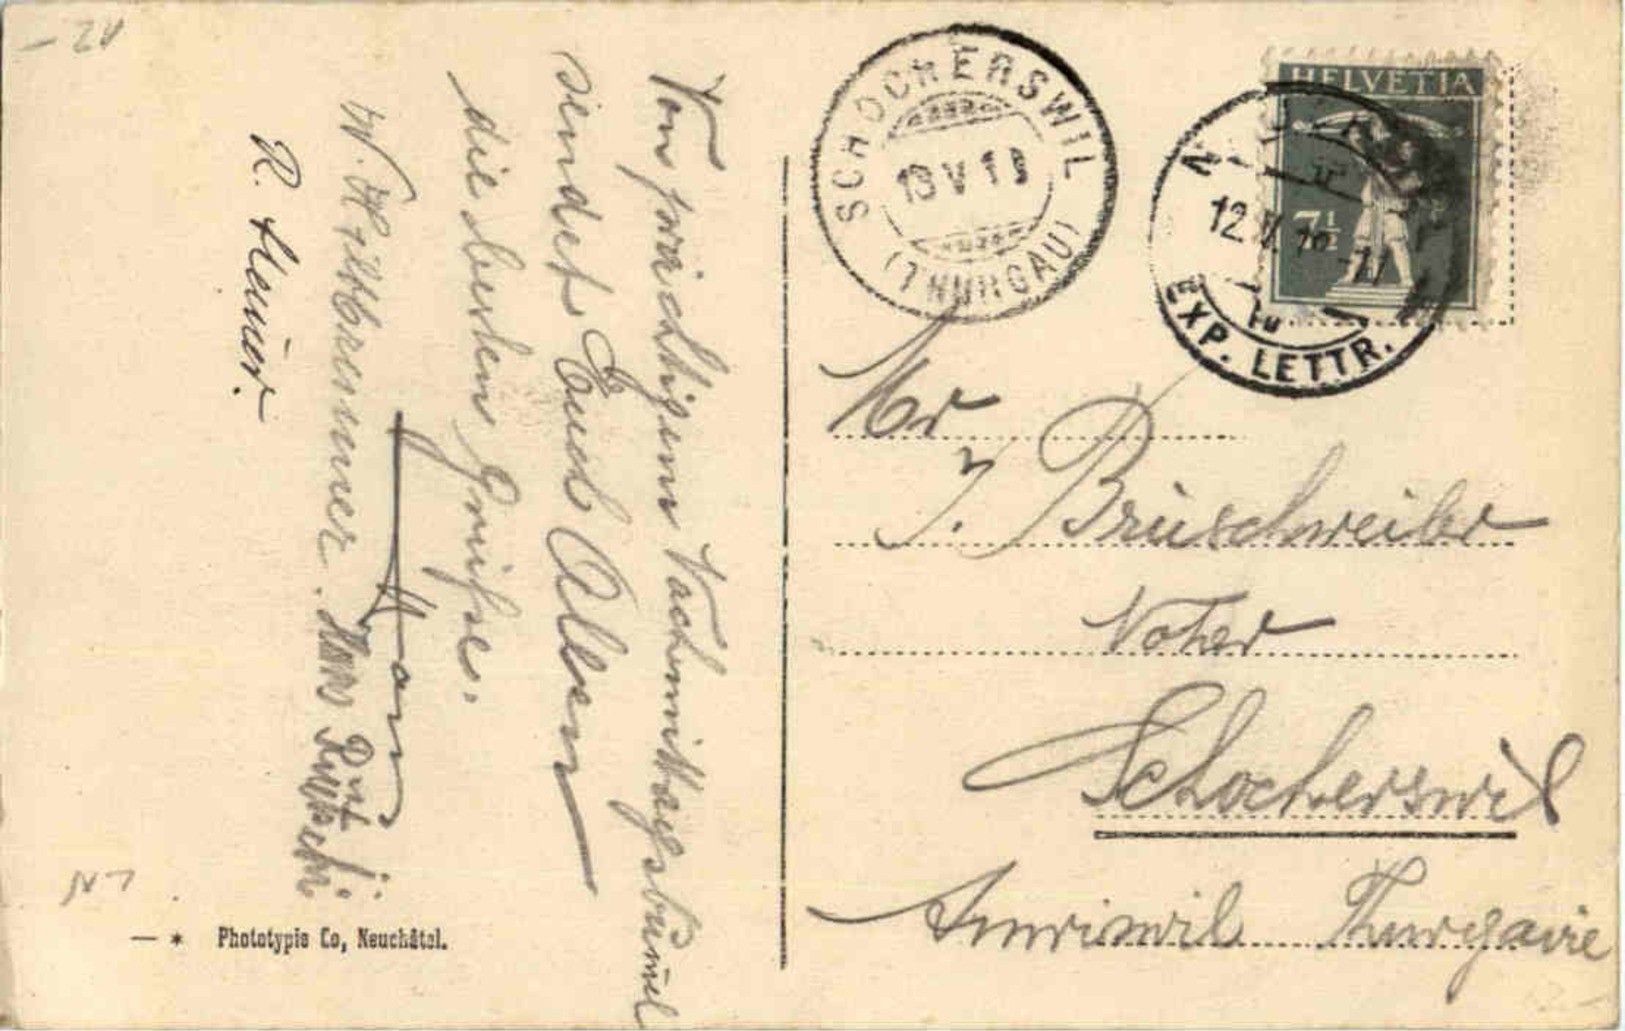 Von prächtigem Nachmittagsbumel
sendet Euch Allen
die besten Grüsse.
Hans
W. Hiltbrunner. Hans
R. Steiner.
Phototypie Co, Neuchâtel.
SCHOCHERSWIL
13 V 16
(THURGAU)
HELVETIA
7½
12.V.16
EXP. LETTR.
Mr
J. Brüschweiler
Notar
Schocherswil
Amriswil Thurgovie